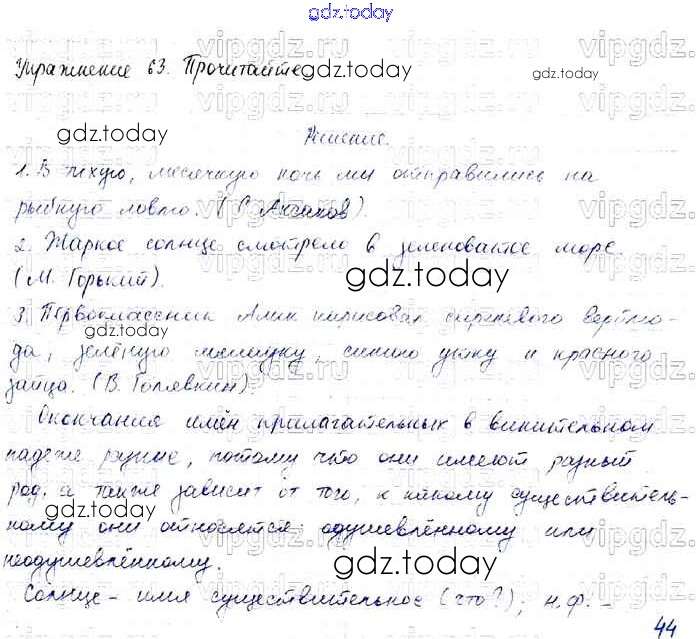 gdz.today
Упражнение 63. Прочитайте
Решение.
1. В тихую, месячную ночь мы отправились на
рыбную ловлю. (С. Аксаков).
2. Жаркое солнце смотрело в зеленоватое море.
(М. Горький).
3. Первоклассник Алик нарисовал сиреневого верблю-
да, зелёную лягушку, синюю утку и красного
зайца. (В. Голявкин).
Окончания имён прилагательных в винительном
падеже разные, потому что они имеют разный
род, а также зависит от того, к какому существитель-
ному они относятся: одушевлённому или
неодушевлённому.
Солнце - имя существительное (что?), н.ф. -
44